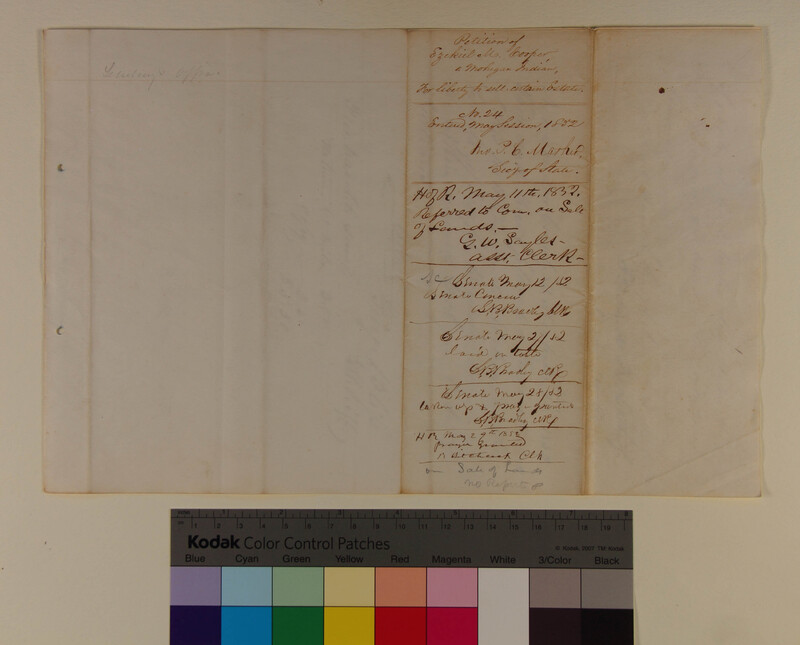 Petition of
Ezekiel M. Cooper
a Mohegan Indian,
For liberty to sell certain Estate.
No. 24
Entered, May Session, 1852
Jno. P. C. Mather,
Sec'y of State.
H of R. May 11th, 1852.
Referred to Com. on Sale
of Lands.—
G. W. Sayles-
asst. Clerk-
Senate May 12 /52
Senate Concur
Clk
Senate May 21/52
laid on table
Clk
Senate May 28/52
taken up & prayer granted
Clk
H R May 29th 1852
prayer granted
Clk
on Sale of Lands
no Report
Kodak Color Control Patches
© Kodak, 2007 TM: Kodak
Blue Cyan Green Yellow Red Magenta White 3/Color Black
inches 1 2 3 4 5 6 7 8
cm 1 2 3 4 5 6 7 8 9 10 11 12 13 14 15 16 17 18 19